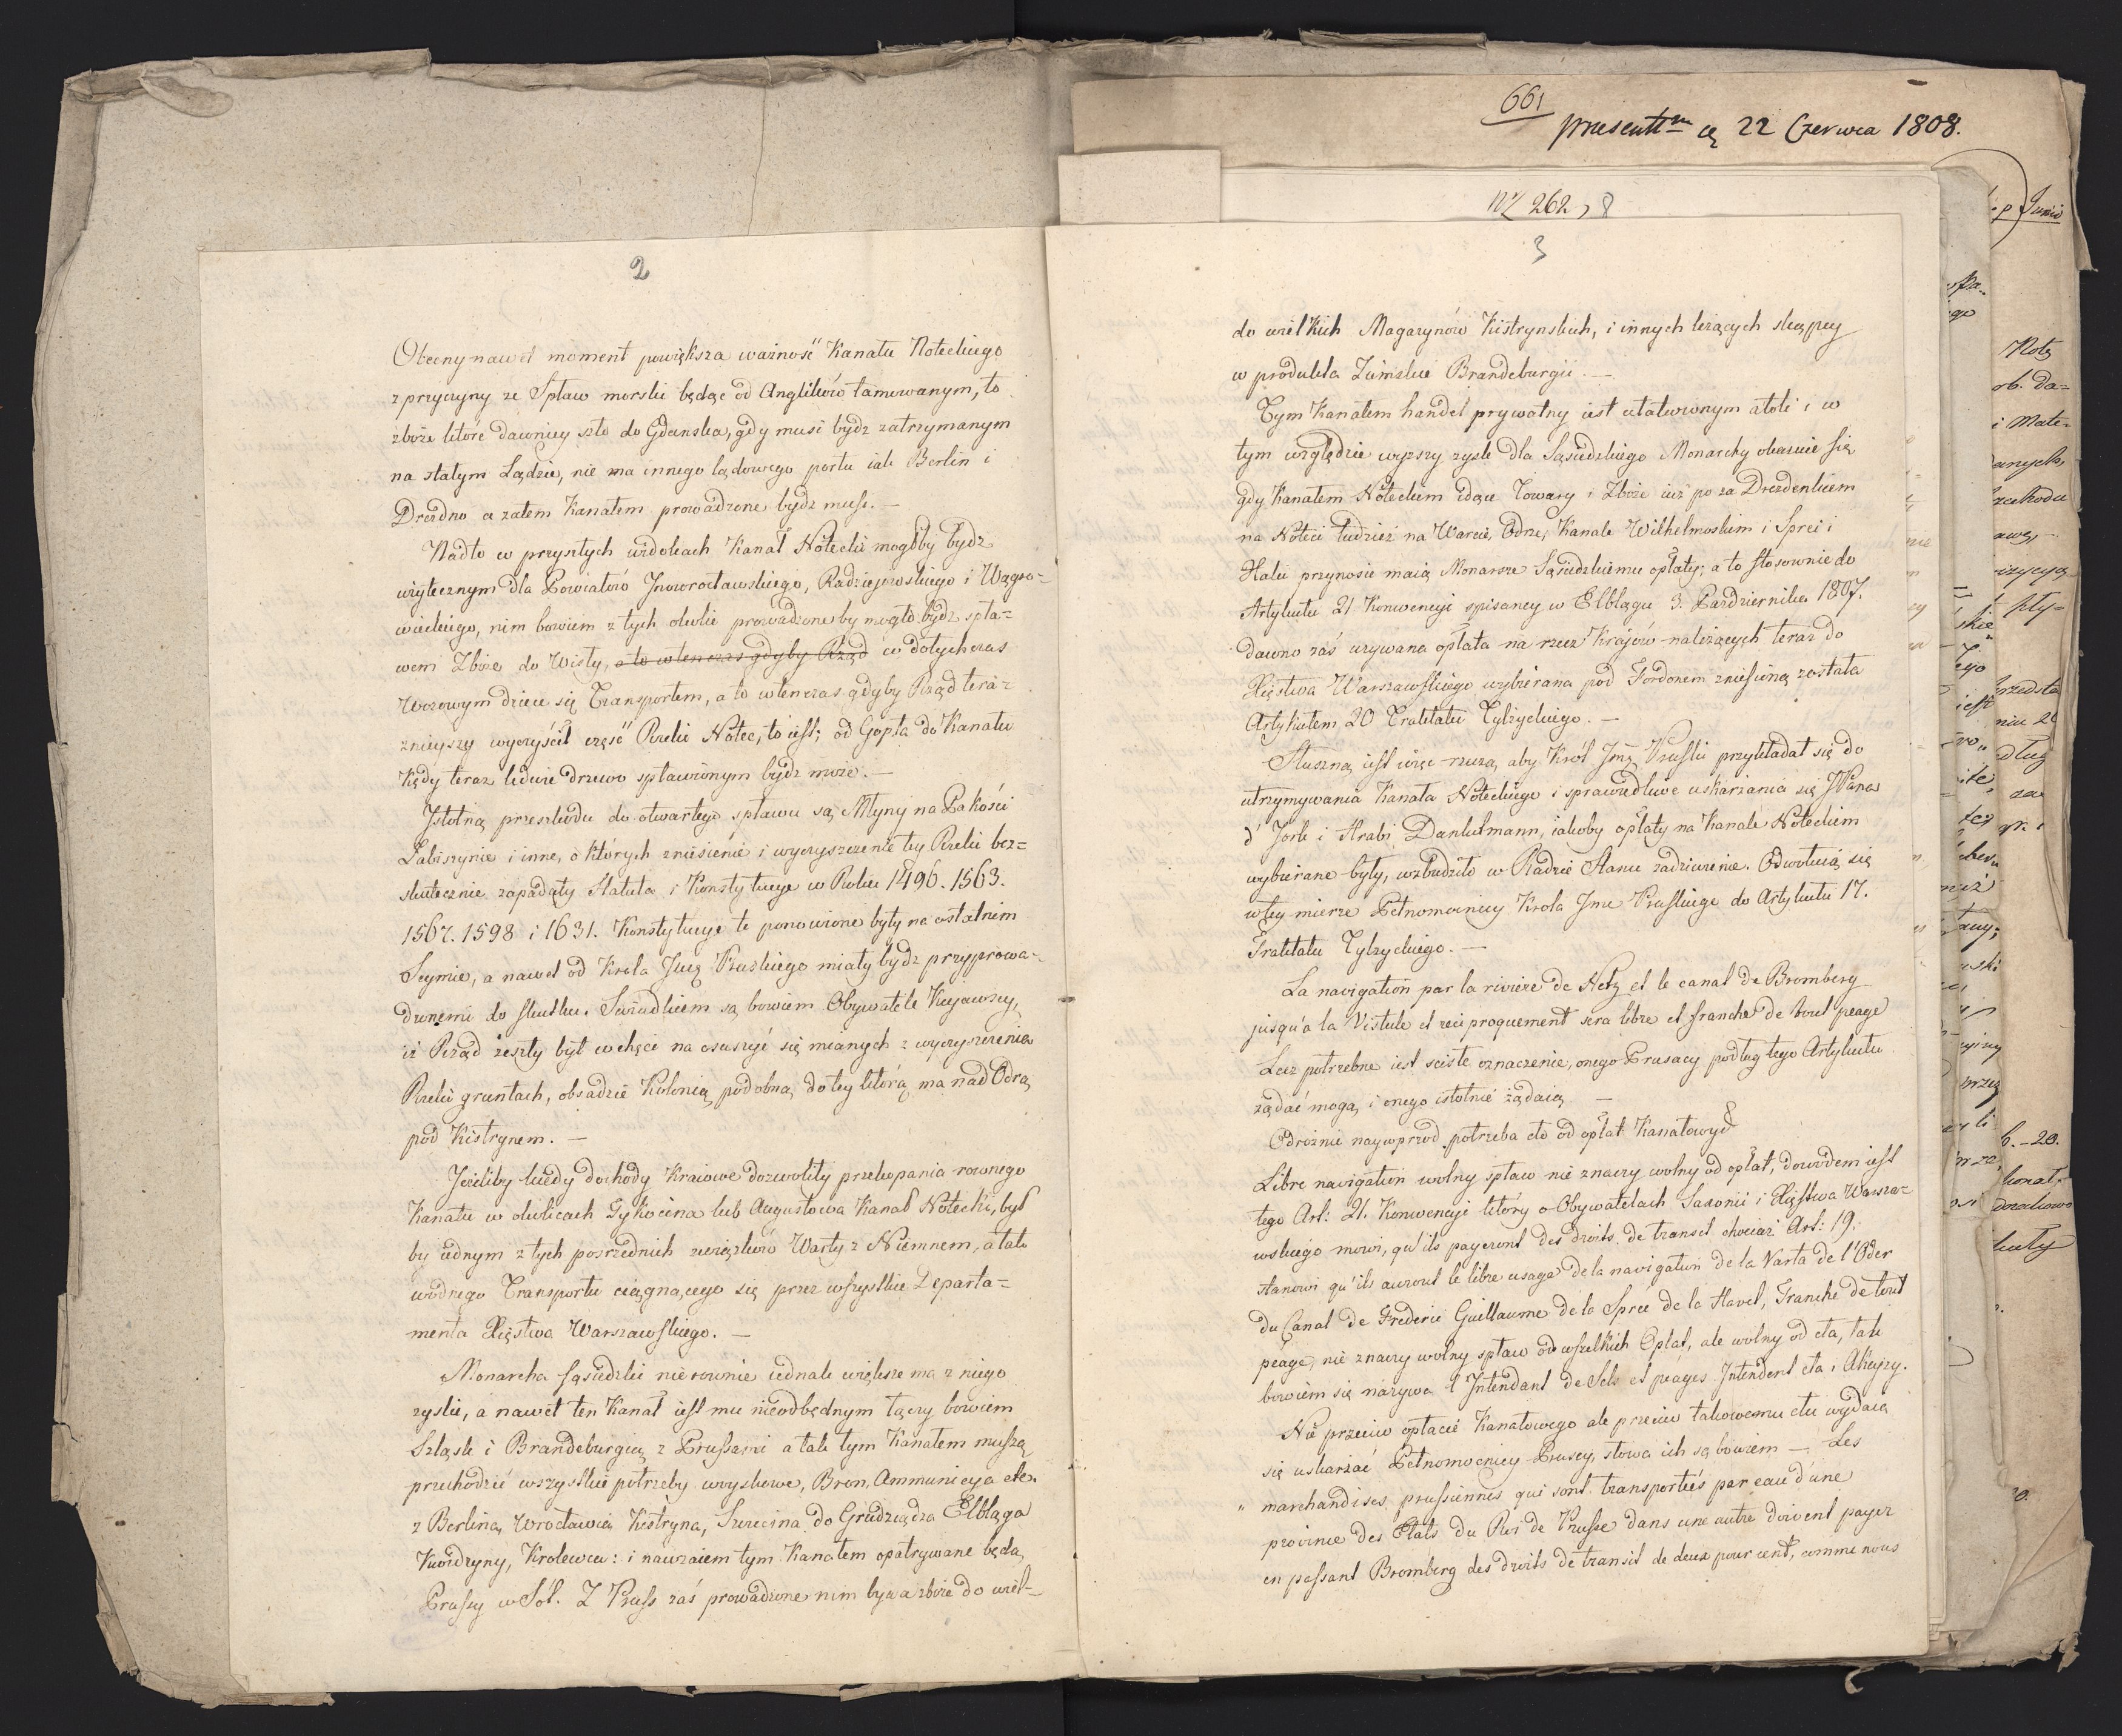 2
Obecny nawet moment powiększa ważność Kanału Noteckiego
z przyczyny że Spław morski będąc od Anglików tamowanym, to
zboże które dawniey szło do Gdanska, gdy musi bydz zatrzymanym
na stałym Lądzie, nie ma innego lądowego portu iak Berlin i
Drezdno a zatem Kanałem prowadzone bydz musi. —
Nadto w przyszłych widokach Kanał Notecki mogłby bydz
użytecznym dla Powiatów Jnowrocławskiego, Radziejowskiego i Wągro-
wieckiego, nim bowiem z tych okolic prowadzone by mogło bydz spła-
wem Zboże do Wisły, a to wtenczas gdyby Rząd co dotychczas
Wozowym dzieie się Transportem, a to wtenczas gdyby Rząd tera-
znieyszy wyczyścił część Rzeki Noteć, to iest; od Gopła do Kanału
Kędy teraz ledwie drzewo spławionym bydz może. —
Jstotną przeszkodu do otwartego spławu są Młyny na Pakości
Łabiszynie i inne, o których zniesienie i wyczyszczenie tey Rzeki bez=
skutecznie zapadały Statuta i Konstytucye w Roku 1496. 1563.
1567. 1598 i 1631. Konstytucye te ponowione były na ostatnim
Seymie, a nawet od Krola Jmę Pruskiego miały bydz przyprowa-
dzonemi do skutku. Swiadkiem są bowiem Obywatele Kujawscy,
iż Rząd zeszły był w chęci na osuszyć się mianych z wyczyszczenia
Rzeki gruntach, obsadzić Kolonią podobną do tey którą ma nad Odrą
pod Kistrynem. —
Jeżeliby kiedy dochody Kraiowe dozwoliły przekopania rownego
Kanału w okolicach Tykocina lub Augustowa Kanał Notecki, był
by iednym z tych posrzednich związków Warty z Niemnem, a tak
wodnego Transportu ciągnącego się przez wszystkie Departa=
menta Xięstwa Warszawskiego. —
Monarcha sąsiedzki nierownie iednak większe ma z niego
zyski, a nawet ten Kanał iest mu nieodbędnym łączy bowiem
Szląsk i Brandeburgią z Prussami a tak tym Kanałem muszą
przechodzić wszystkie potrzeby woyskowe, Bron, Ammunicya etc.
z Berlina, Wrocławia Kistryna, Szczecina do Grudziądza Elbląga
Kwidzyny, Krolewca: i nawzaiem tym Kanałem opatrywane będą
Prussy w Sól. Z Pruss zaś prowadzone nim bywa zboże do wiel-
661
presentt<sup>m</sup> 22 Czerwca 1808.
262, 8
3
do wielkich Magazynów Kistrynskich, i innych leżących skąpey
w produkta Ziemskie Brandeburgii. —
Tym Kanałem handel prywatny iest ułatwionym atoli i w
tym względzie wyższy zysk dla Sąsiedzkiego Monarchy okazuie się
gdy Kanałem Noteckim idące Towary i Zboże iuż po za Drezdenkiem
na Noteci tudzież na Warcie, Odrze, Kanale Wilhelmoskim i Sprei i
Halii przynosić maią Monarsze Sąsiedzkiemu opłaty; a to stosownie do
Artykułu 21 Konwencyi spisaney w Elblągu 3. Pazdziernika 1807.
dawno zaś używana opłata na rzecz Krajów należących teraz do
Xięstwa Warszawskiego wybierana pod Fordonem zniesioną została
Artykułem 20 Traktatu Tylżyckiego. —
Słuszną iest więc rzeczą, aby Król Jmę Pruski przykładał się do
utrzymywania Kanału Noteckiego i sprawiedliwe uskarżania się JPana
d' Jork i Hrabi Dankelmann, iakoby opłaty na Kanale Noteckim
wybierane były, wzbudziło w Radzie Stanu zadziwienie. Odwołuią się
w tey mierze Pełnomocnicy Krola Jme Pruskiego do Artykułu 17.
Traktatu Tylzyckiego. —
La navigation par la riviere de Netz et le canal de Bromberg
jusqu'a la Vistule et reciproquement sera libre et franche de tout peage
Lecz potrzebne iest sciste oznaczenie, onego Prusacy podług tego Artykułu
żądać mogą, i onego istotnie żądaią —
Odrożnić naywprzod potrzeba cło od opłat Kanałowych
Libre navigation wolny spław nie znaczy wolny od opłat, dowodem iest
tego Art: 21. Konwencyi który o Obywatelach Saxonii i Xięstwa Warsza=
wskiego mowi, qu'ils payeront des droits de transit chociaż Art: 19.
stanowi qu'ils auront le libre usage de la navigation de la Varta de l'Oder
du Canal de Frederic Guillaume de la Sprée de la Havel, Franche de tout
péage, nie znaczy wolny spław od wszelkich Opłat, ale wolny od cła, tak
bowiem się nazywa l'Intendant de Sels et péages Jntendent cła i Akcyzy.
Nie przeciw opłacie Kanałowego ale przeciw takowemu cłu wydaią
się uskarżać Pełnomocnicy Pruscy, słowa ich są bowiem — Les
„ marchandises prussiennes qui sont transportées par eau d'une
province des Etats du Roi de Prusse dans une autre doivent payer
en passant Bromberg des droits de transit de deux pour cent, comme nous